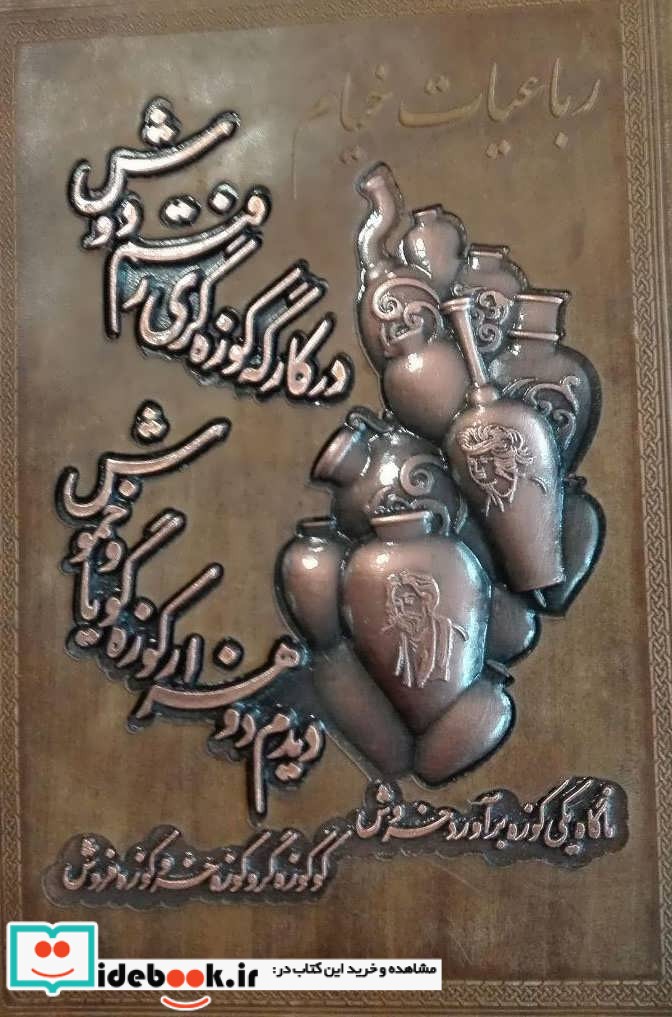 رباعیات خیام
در کارگه کوزه گری رفتم دوش
دیدم دو هزار کوزه گویا و خموش
ناگاه یکی کوزه برآورد خروش
کو کوزه گر و کوزه خر و کوزه فروش
مشاهده و خرید این کتاب در:
idebook.ir